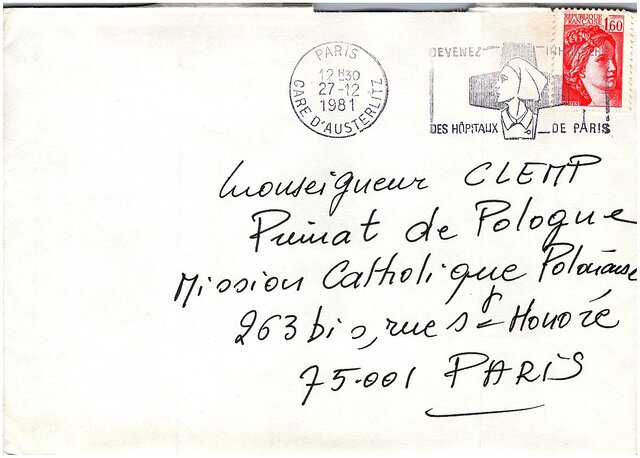 PARIS
12 H30
27-12
1981
GARE D'AUSTERLITZ
DEVENEZ
DES HÔPITAUX DE PARIS
REPUBLIQUE
FRANÇAISE
1,60
Monseigneur CLEMP
Primat de Pologne
Mission Catholique Polonaise
263 bis, rue St-Honoré
75.001 PARIS